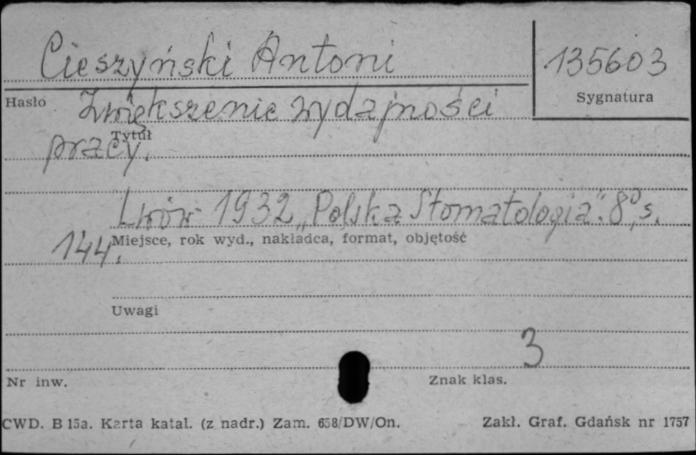 Cieszyński Antoni
135603
Hasło
Sygnatura
Zwiększenie wydajności
Tytuł
pracy.
Lwów 1932 „Polska Stomatologia”. 8°, s.
144.
Miejsce, rok wyd., nakładca, format, objętość
Uwagi
3
Nr inw.
Znak klas.
CWD. B 15a. Karta katal. (z nadr.) Zam. 658/DW/On.
Zakł. Graf. Gdańsk nr 1757